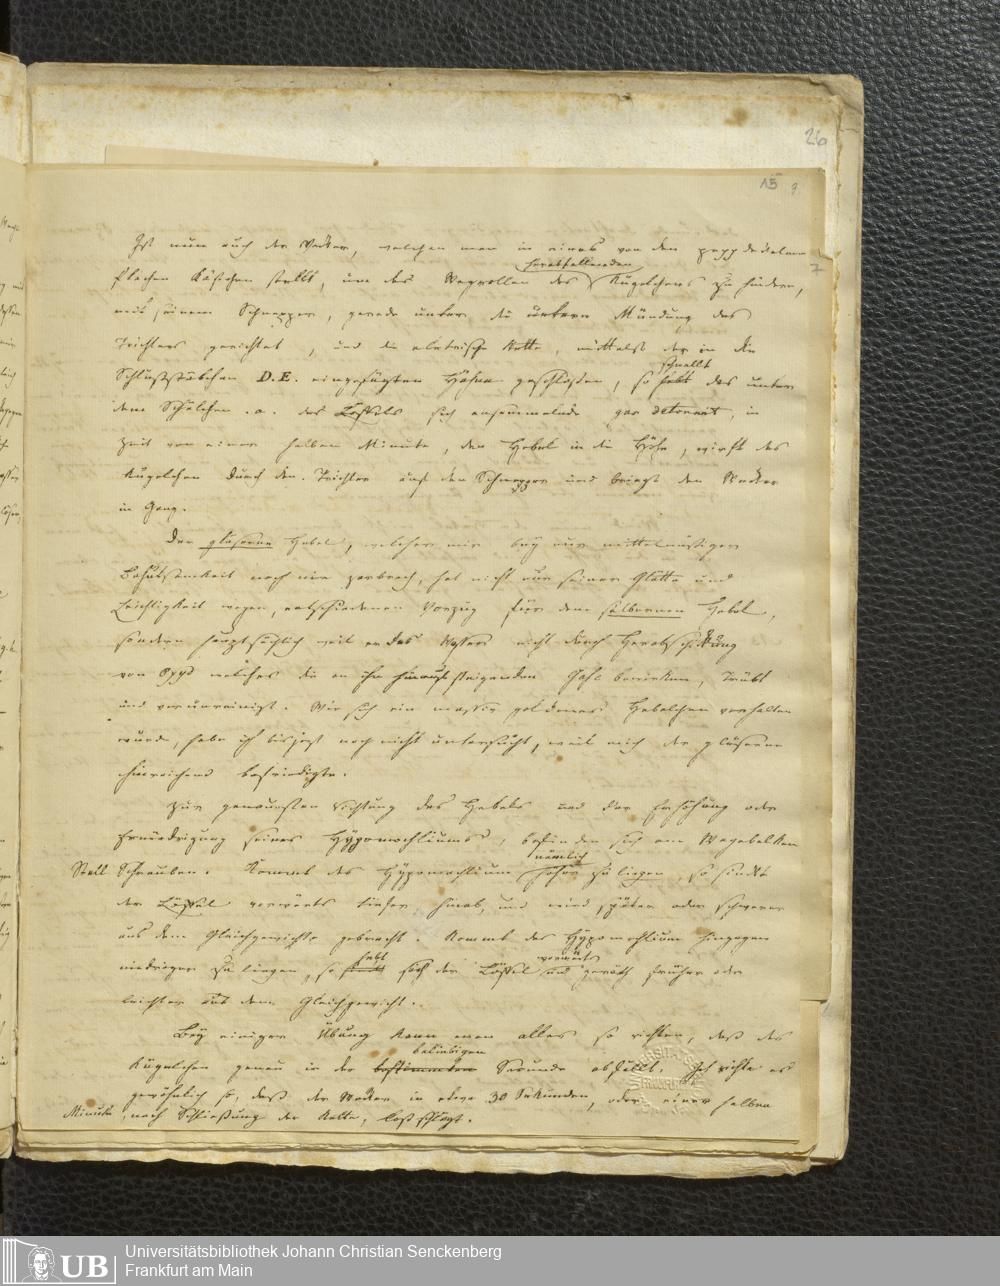 26
15
7
Ist nun auch der Wecker, welchen man in eines von den pappdeckelnen
flachen Kästchen stellt, um das Wegrollen des herabfallenden Kügelchens zu hindern,
mit seinem Schnepper, gerade unter die untere Mündung des
Trichters gerichtet, und die elektrische Kette, mittelst der in die
Schlußstäbchen D.E. eingefügten Häken geschlossen, so hebt schnellt das unter
dem Schälchen .a. des Löffels sich ansammelnde gas detonant, in
Zeit von einer halben Minute, den Hebel in die Höhe, wirft das
Kügelchen durch den Trichter auf den Schnepper und bringt den Wecker
in Gang.
Der gläserne Hebel, welcher mir bey nur mittelmäßiger
Behutsamkeit noch nie zerbrach, hat nicht nur seiner Glätte und
Leichtigkeit wegen, entschiedenen Vorzug für dem silbernen Hebel,
sondern hauptsächlich weil er das Wasser nicht durch Herabschickung
von Oxyd welches die an ihm hinaufsteigenden Gase bewirken, trübt
und verunreinigt. Wie sich ein massiv goldenes Hebelchen verhalten
würde, habe ich bis jezt noch nicht untersucht, weil mich der gläserne
hinreichend befriedigte.
Zur genauesten Richtung des Hebels und der Erhöhung oder
Erniedrigung seines Hypomochliums, befinden sich am Wagebalken
Stell Schrauben. Kommt das Hypomochlium nämlich höher zu liegen, so sinkt
der Löffel vorwärts tiefer hinab, und wird später oder schwerer
aus dem Gleichgewichte gebracht. Kommt das Hypomochlium hingegen
niedriger zu liegen, so sinkt hebt sich der Löffel vorwärts und geräth früher oder
leichter aus dem Gleichgewicht.
Bey einiger Übung kann man alles so richten, daß das
Kügelchen genau in der bestimmten beliebigen Secunde abfällt. Ich richte es
gewöhnlich so, daß der Wecker in etwa 30 Sekunden, oder einer halben
Minute, nach Schließung der Kette, losschlägt.
UNIVERSITÄTS
FRANKFURT
UB
Universitätsbibliothek Johann Christian Senckenberg
Frankfurt am Main